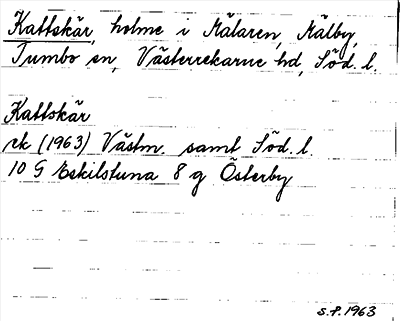 Kattskär, holme i Mälaren, Mälby,
Tumbo sn, Västerrekarne hd, Söd. l.
Kattskär
rk (1963) Västm. samt Söd. l.
10 G Eskilstuna 8 g Österby
S.P. 1963